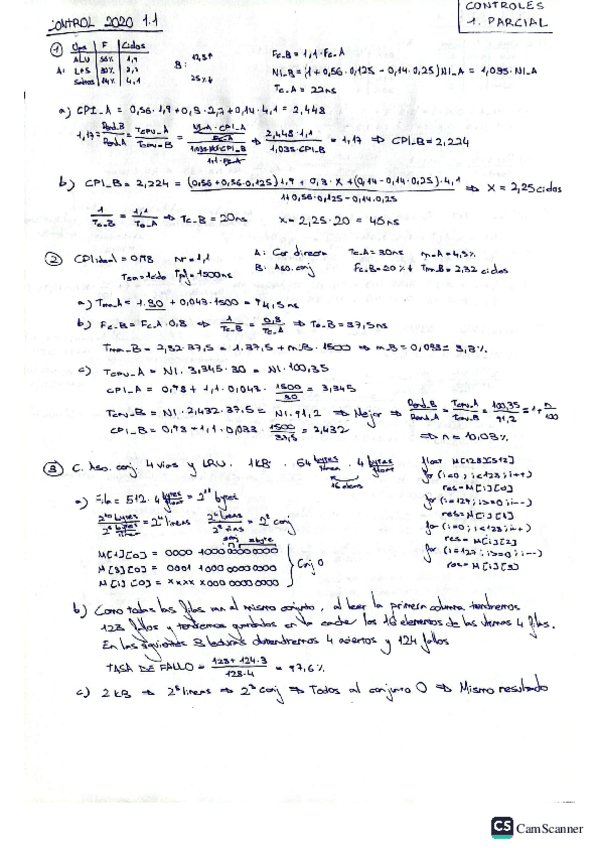 CONTROLES
1. PARCIAL
CONTROL 2020 1.1
① Ops F Ciclos
ALU 56% 1,9
A: L+S 30% 2,7
Saltos 14% 4,1
B: 12,5↑
25%↓
Fc_B = 1,1·Fc_A
NI_B = (1 + 0,56·0,125 - 0,14·0,25) NI_A = 1,035·NI_A
Tc_A = 22ns
a) CPI_A = 0,56·1,9 + 0,3·2,7 + 0,14·4,1 = 2,448
1,17 = Rend_B / Rend_A = Tcpu_A / Tcpu_B = (NI_A · CPI_A / Fc_A) / (1,035·NI_A·CPI_B / 1,1·Fc_A) ⇒ 2,448·1,1 / 1,035·CPI_B = 1,17 ⇒ CPI_B = 2,224
b) CPI_B = 2,224 = (0,56+0,56·0,125)·1,9 + 0,3·X + (0,14-0,14·0,25)·4,1 / 1+0,56·0,125-0,14·0,25 ⇒ X = 2,25 ciclos
1/Tc_B = 1,1/Tc_A ⇒ Tc_B = 20ns X = 2,25·20 = 45ns
② CPI ideal = 0,98 nr = 1,1 A: Cor directa Tc_A = 30ns m_A = 4,3%
Tsa = 1 ciclo Tpf = 1500ns B: Aso. conj Fc_B = 20%↓ Tma_B = 2,32 ciclos
a) Tma_A = 1·30 + 0,043·1500 = 94,5ns
b) Fc_B = Fc_A·0,8 ⇒ 1/Tc_B = 0,8/Tc_A ⇒ Tc_B = 37,5ns
Tma_B = 2,32·37,5 = 1·37,5 + m_B·1500 ⇒ m_B = 0,033 = 3,3%
c) Tcpu_A = NI·3,345·30 = NI·100,35
CPI_A = 0,98 + 1,1·0,043·1500/30 = 3,345
Tcpu_B = NI·2,432·37,5 = NI·91,2 ⇒ Mejor ⇒ Rend_B / Rend_A = Tcpu_A / Tcpu_B = 100,35 / 91,2 = 1 + n/100
CPI_B = 0,98 + 1,1·0,033·1500/37,5 = 2,432 ⇒ n = 10,03%
③ C. Aso. conj. 4 vías y LRU. 1KB. 64 bytes/línea. 4 bytes/float
16 elems
float M[128][512]
for (i=0; i<128; i++)
res = M[i][0]
for (i=127; i>=0; i--)
res = M[i][1]
for (i=0; i<128; i++)
res = M[i][2]
for (i=127; i>=0; i--)
res = M[i][3]
a) Fila = 512·4 bytes/float = 2¹¹ bytes
2¹⁰ bytes / 2⁶ bytes/línea = 2⁴ líneas 2⁴ líneas / 2² vías = 2² conj
conj #byte
M[1][0] = 0000 1000 0000 0000
M[3][0] = 0001 1000 0000 0000 Conj 0
M[i][0] = XXXX X000 0000 0000
b) Como todas las filas van al mismo conjunto, al leer la primera columna tendremos
128 fallos y tendremos guardados en la caché los 16 elementos de las últimas 4 filas.
En las siguientes 3 lecturas obtendremos 4 aciertos y 124 fallos
TASA DE FALLO = 128 + 124·3 / 128·4 = 97,6%
c) 2KB ⇒ 2⁵ líneas ⇒ 2³ conj ⇒ Todos al conjunto 0 ⇒ Mismo resultado
CS CamScanner